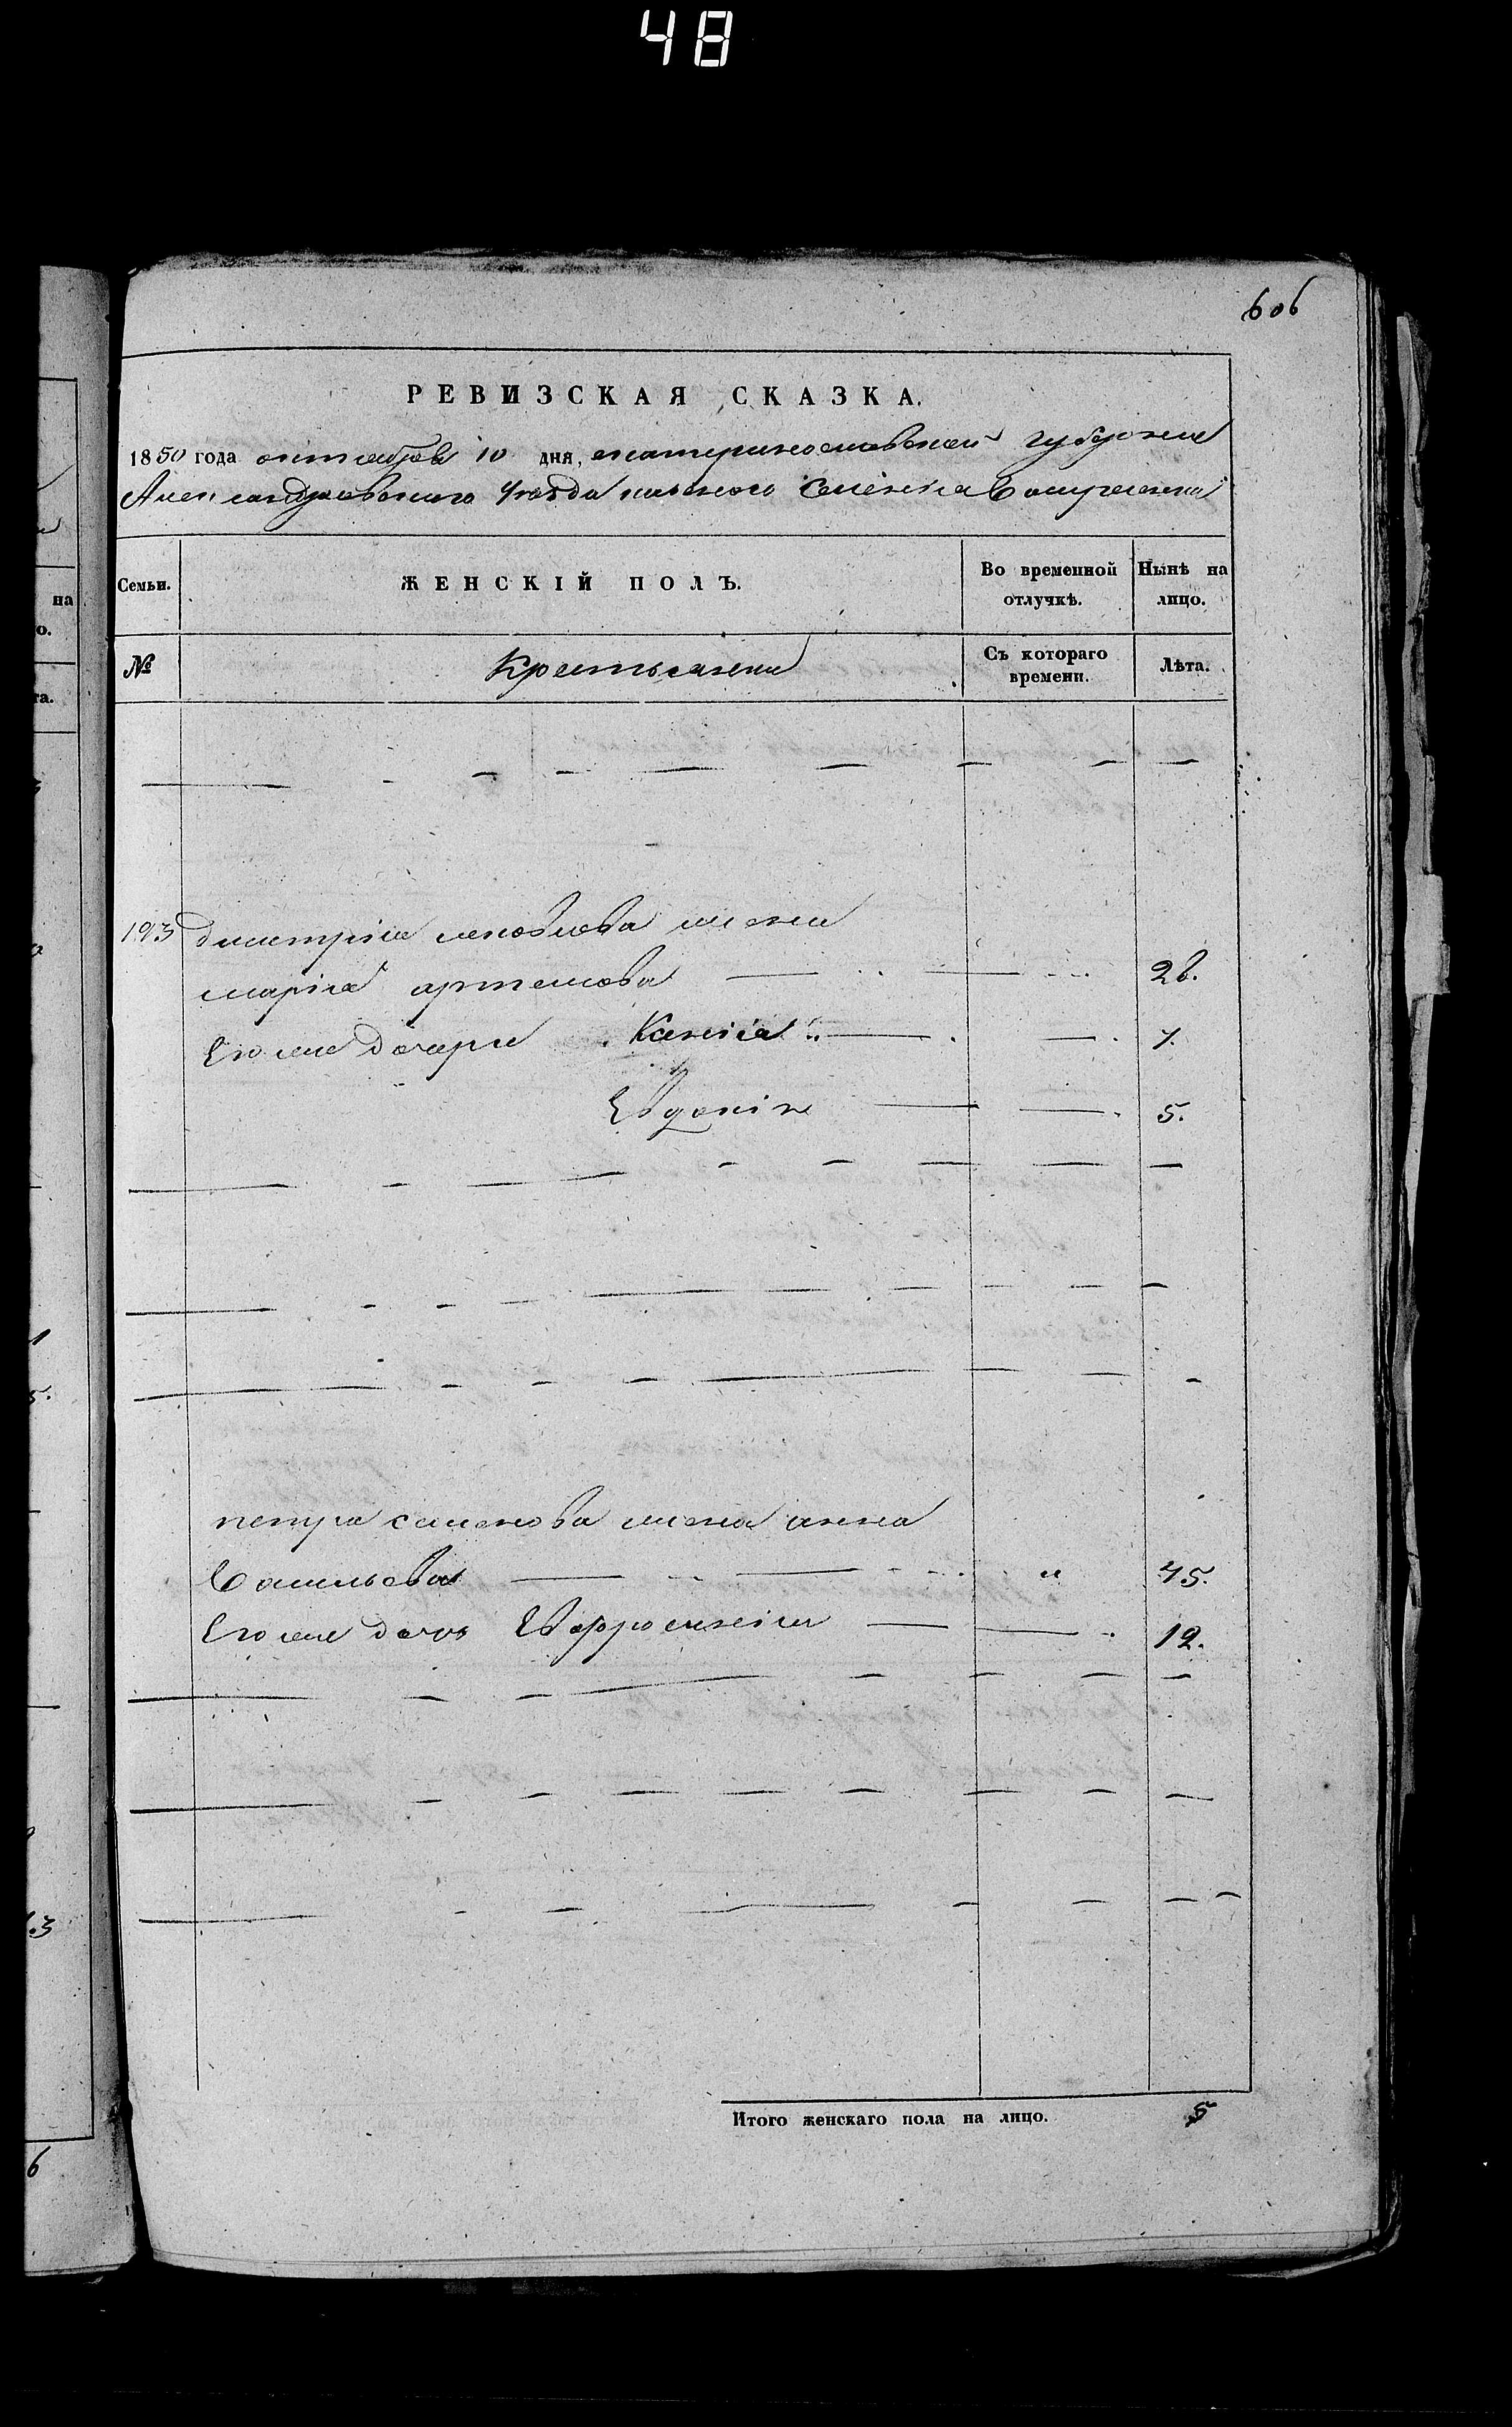 48
606
РЕВИЗСКАЯ СКАЗКА.
1850 года октября 10 дня, екатеринославской губернии
Александровского уезда казеного селения
Семьи. ЖЕНСКІЙ ПОЛЪ. Во временной отлучкѣ. Нынѣ на лицо.
№ Крестьянки Съ котораго времени. Лѣта.
193 дмитрія яковлева жена
марія артемова 26.
Его же дочери Ксенія 7.
Евдокія 5.
петра семенова жена анна
Васильева " 45.
Его же дочь Евфросинія 12.
Итого женскаго пола на лицо. 5
на
о.
та.
5.
.3
6